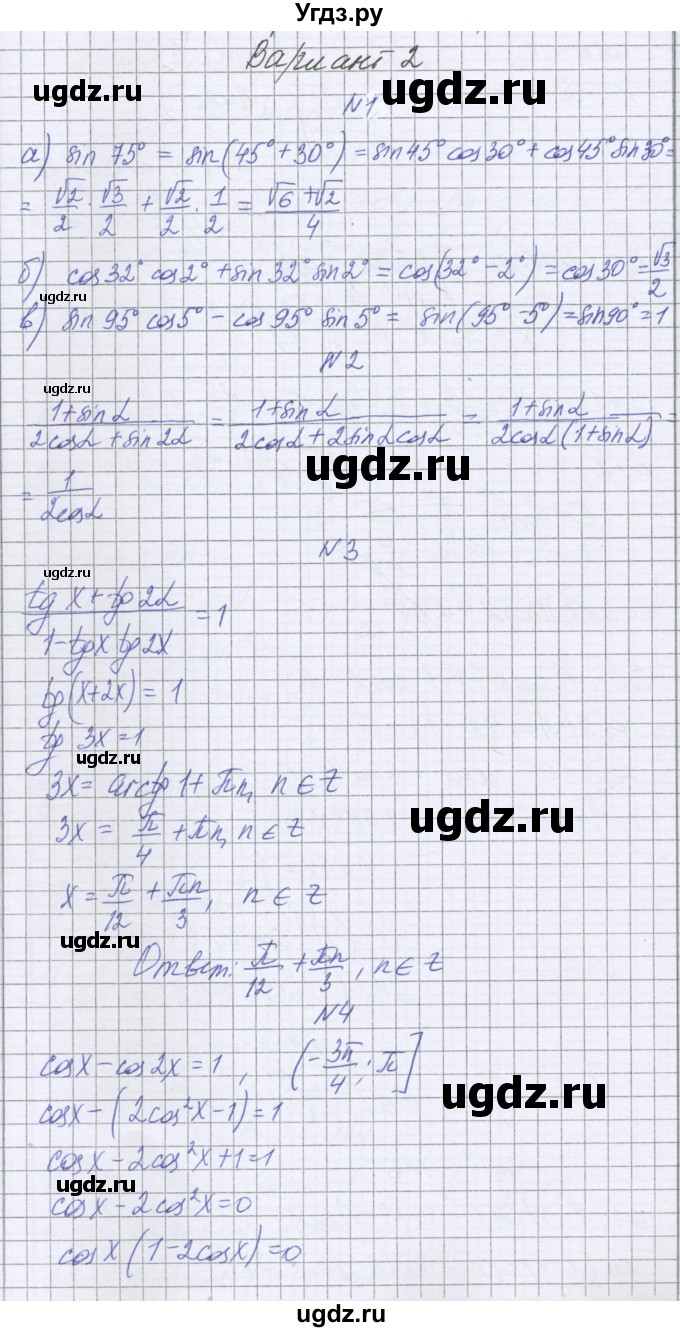 Угдз.ру
Вариант 2
ugdz.ru ugdz.ru
N1
а) sin 75° = sin(45° + 30°) = sin45° cos30° + cos45° sin30° =
= √2/2 · √3/2 + √2/2 · 1/2 = (√6 + √2)/4
б) cos32° cos2° + sin32° sin2° = cos(32° - 2°) = cos30° = √3/2
ugdz.ru
в) sin 95° cos5° - cos95° sin5° = sin(95° - 5°) = sin90° = 1
N2
ugdz.ru
(1+sinα)/(2cosα + sin2α) = (1+sinα)/(2cosα + 2sinα cosα) = (1+sinα)/(2cosα(1+sinα)) =
ugdz.ru
= 1/(2cosα)
N3
ugdz.ru
(tg x + tg 2α)/(1 - tg x tg 2x) = 1
tg(x+2x) = 1
tg 3x = 1
ugdz.ru
3x = arctg 1 + πn, n ∈ Z
3x = π/4 + πn, n ∈ Z
ugdz.ru
x = π/12 + πn/3, n ∈ Z
ugdz.ru
Ответ: π/12 + πn/3, n ∈ Z
N4
cosx - cos2x = 1, (-3π/4; π]
ugdz.ru
cosx - (2cos²x - 1) = 1
cosx - 2cos²x + 1 = 1
ugdz.ru
cosx - 2cos²x = 0
cosx(1 - 2cosx) = 0
ugdz.ru